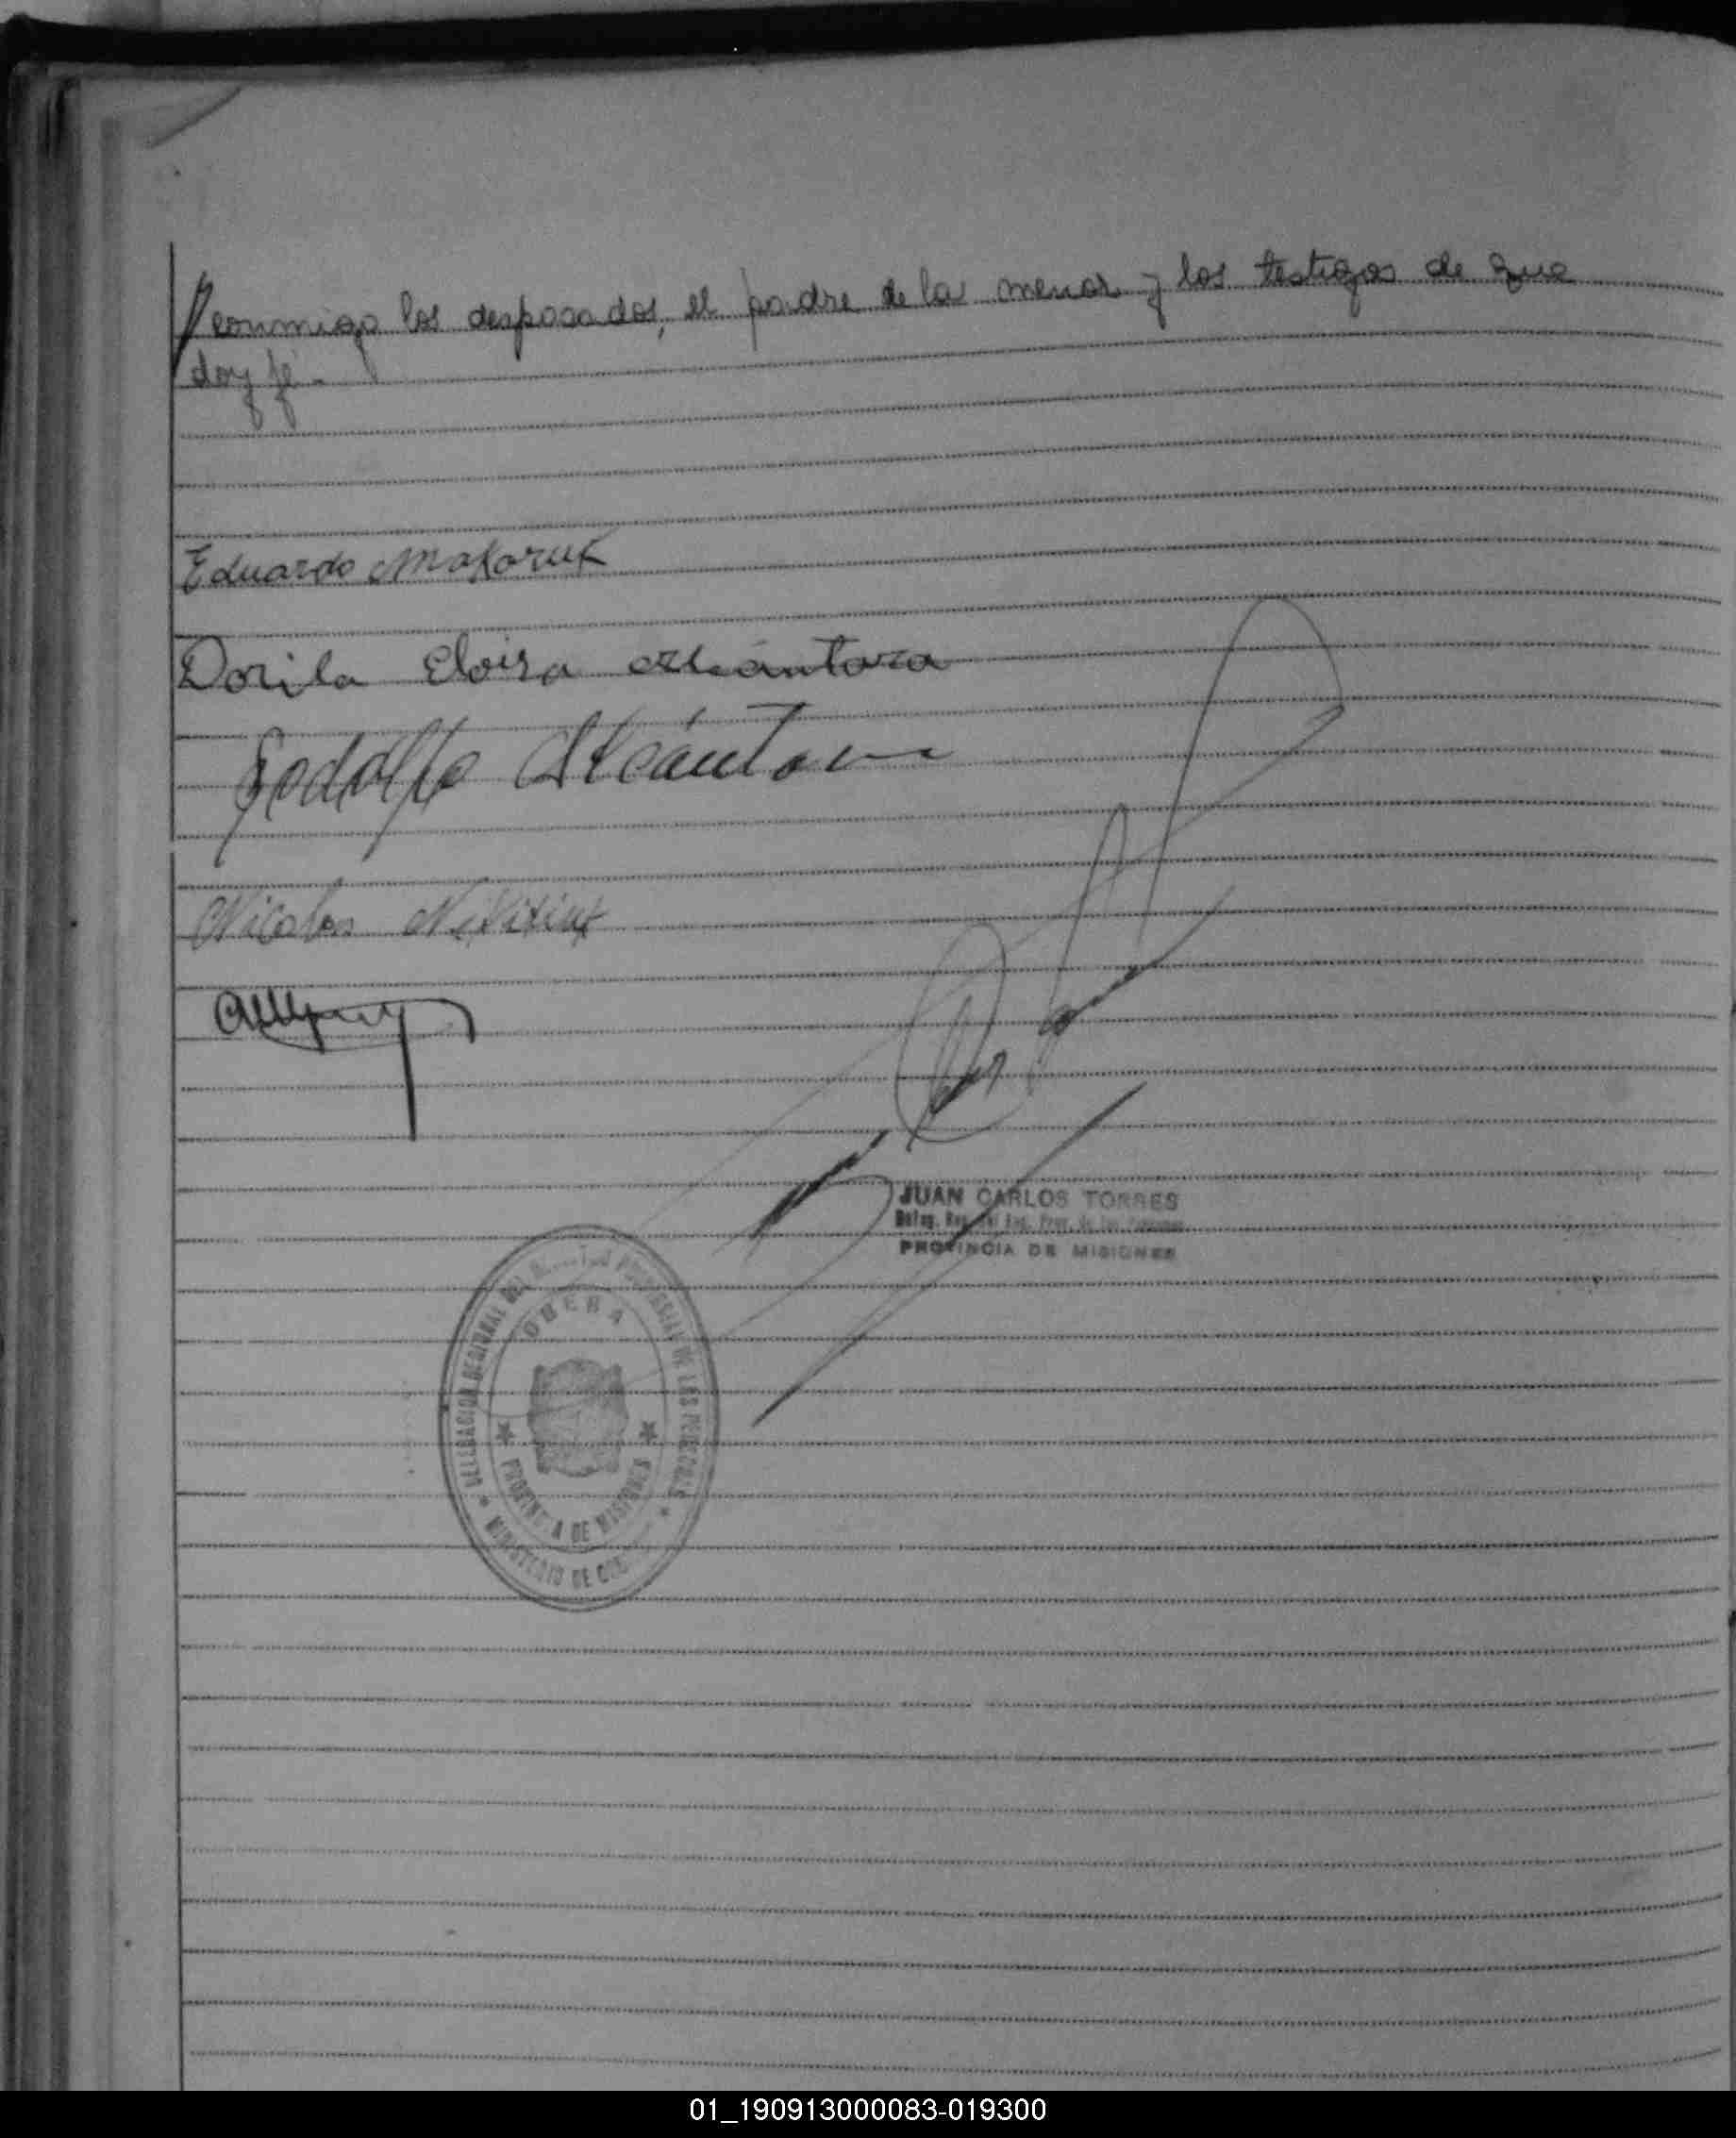 conmigo los desposados, el padre de la menor y los testigos de que
doy fé.-
Eduardo Makaruk
Dorila Eloisa Alcántara
Rodolfo Alcántara
Nicolas
JUAN CARLOS TORRES
Deleg. Reg. del Reg. Prov. de las Personas
PROVINCIA DE MISIONES
DELEGACION REGIONAL DEL PROVINCIAL DE LAS PERSONAS
OBERA
PROVINCIA DE MISIONES
MINISTERIO DE
01_190913000083-019300